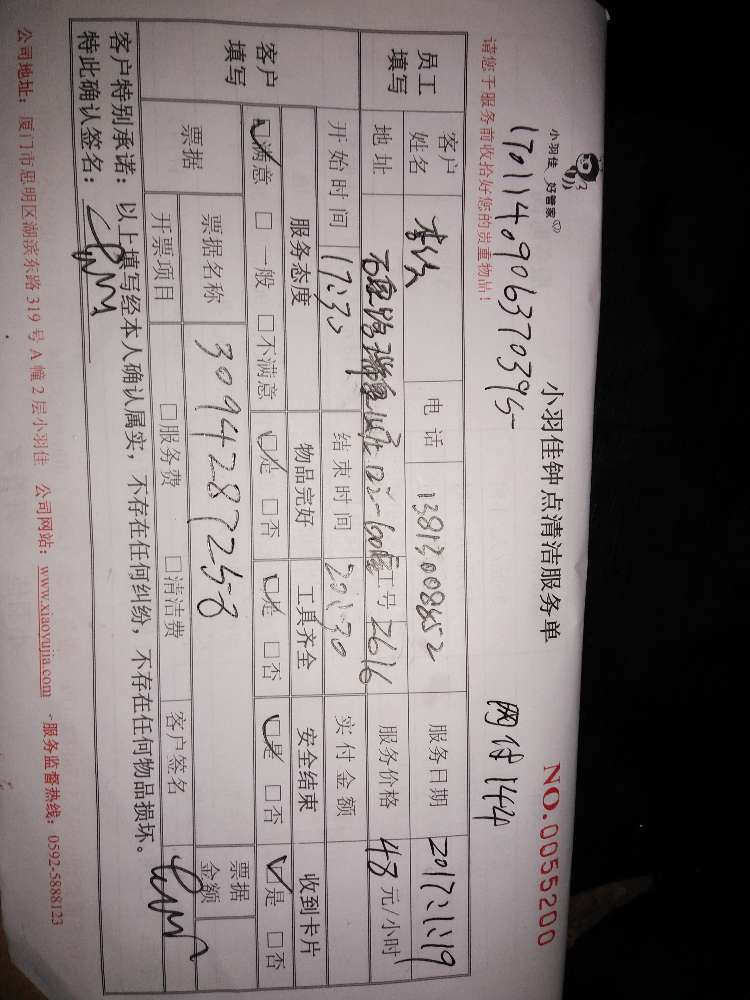 小羽佳 好管家
小羽佳钟点清洁服务单
NO.0055200
1701140906370395
网付144
请您于服务前收拾好您的贵重物品！
员工填写
客户姓名 电话 13813008852 服务日期 2017:1:19
地址 工号 2616 服务价格 48 元/小时
开始时间 17:30 结束时间 20:30 实付金额
客户填写
服务态度 物品完好 工具齐全 安全结束 收到卡片
☑满意 □一般 □不满意 ☑是 □否 ☑是 □否 ☑是 □否 ☑是 □否
票据 票据名称 3094287258 票据金额
开票项目 □服务费 □清洁费 客户签名
客户特别承诺：以上填写经本人确认属实，不存在任何纠纷，不存在任何物品损坏。
特此确认签名：
公司地址：厦门市思明区湖滨东路319号A幢2层小羽佳 公司网站：www.xiaoyujia.com 服务监督热线：0592-5888123